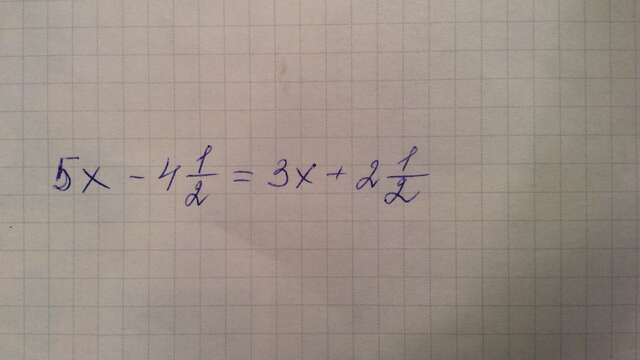 5x - 4 1/2 = 3x + 2 1/2